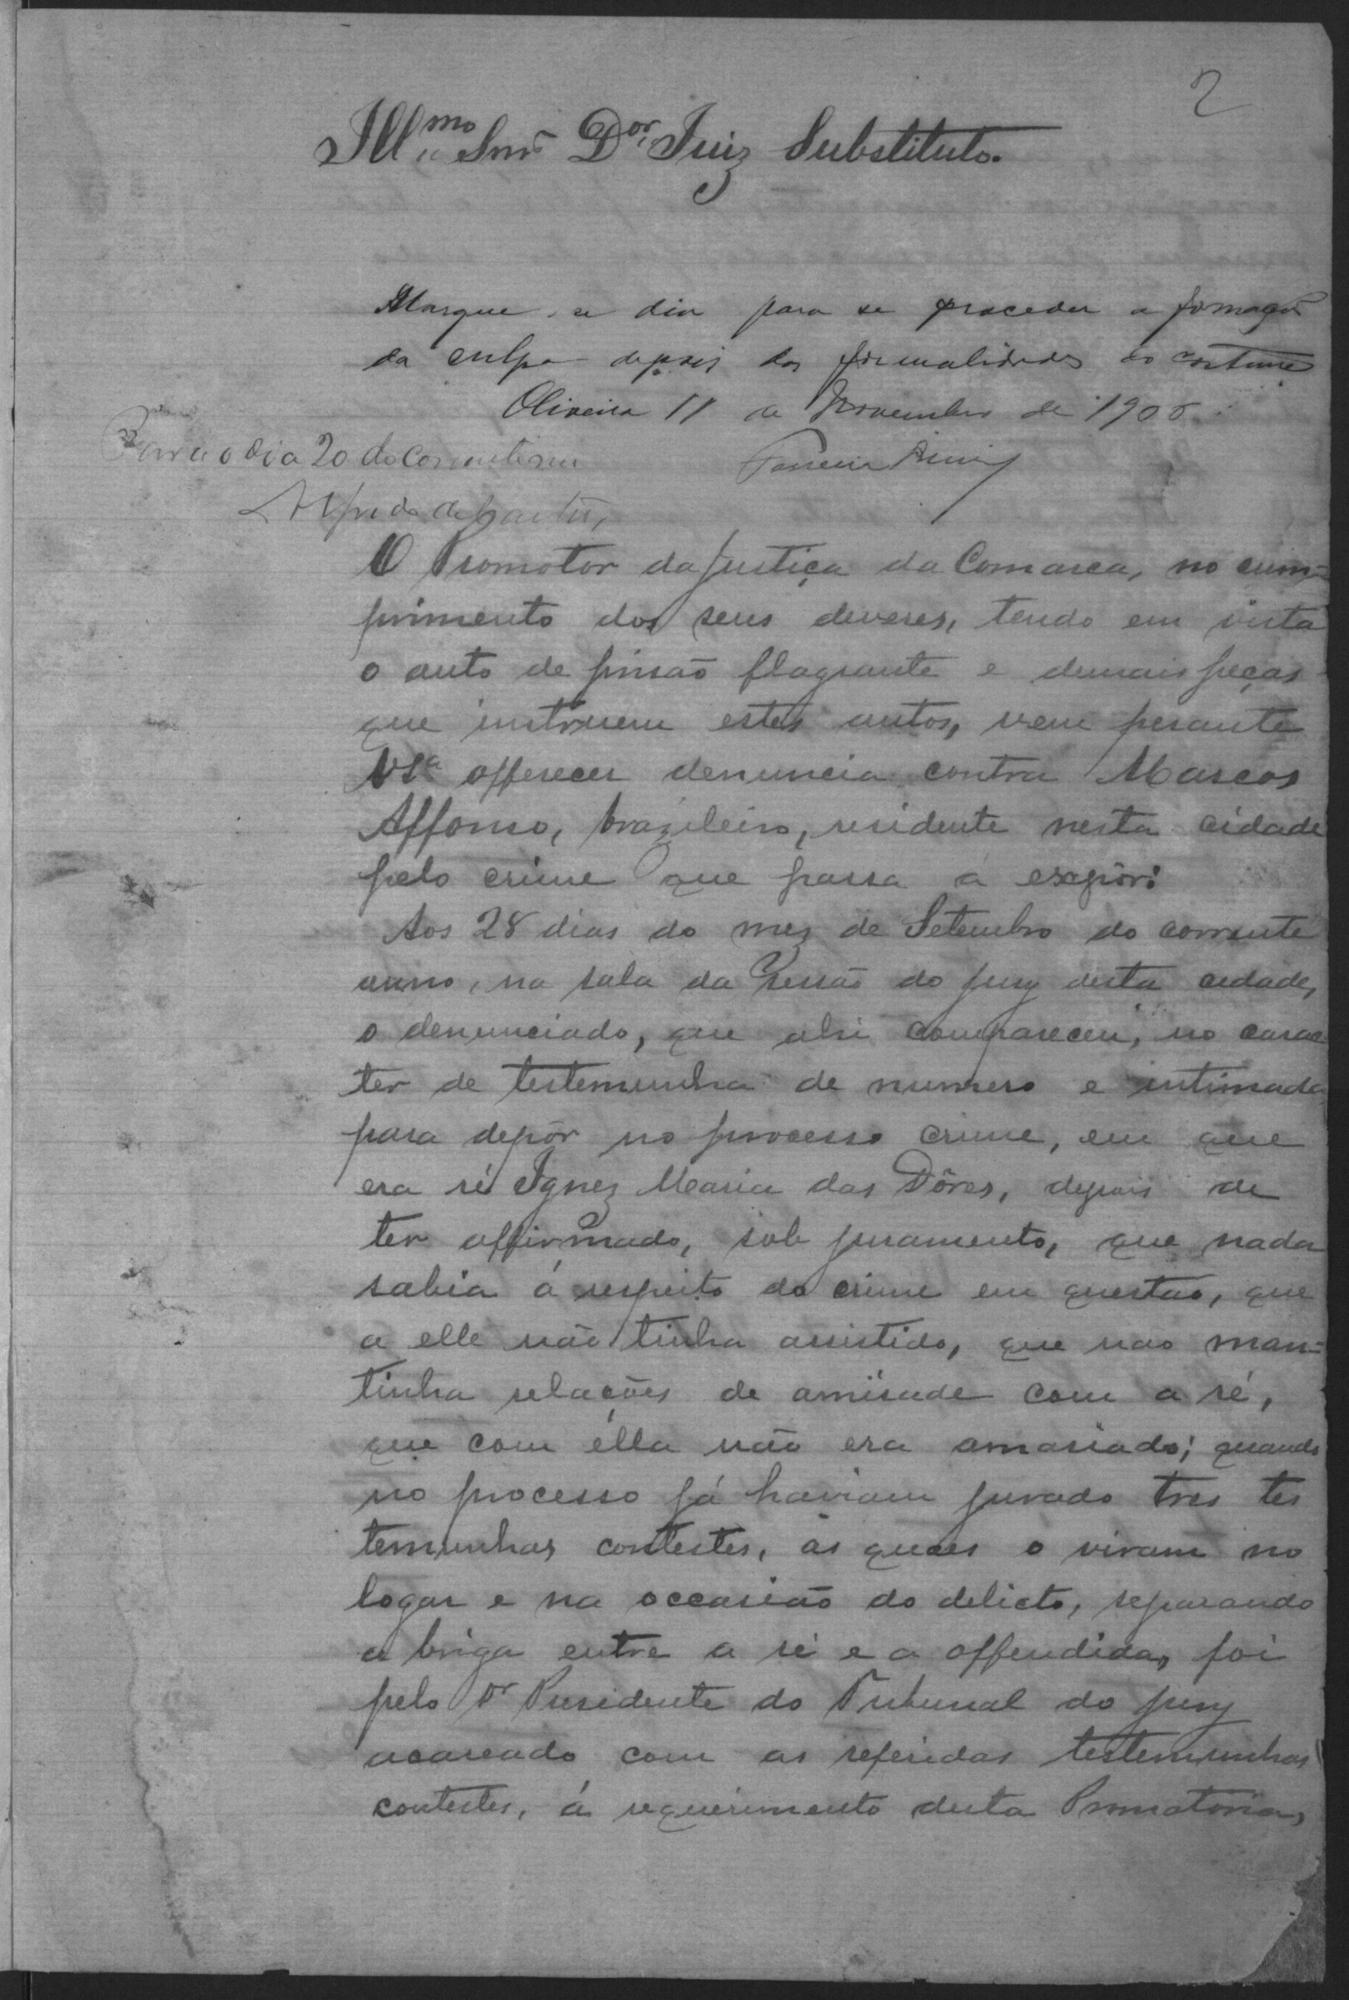 2
Ill.mo Snr Dor Juiz Substituto.
Marque-se dia para se proceder a formação
da culpa depois das formalidades do costume
Oliveira 11 de Novembro de 190
Para o dia 20 do corrente
Alfredo de
O Promotor da Justiça da Comarca, no cum=
primento dos seus deveres, tendo em vista
o auto de prisão flagrante e demais peças
que instruem estes autos, vem perante
VSa offerecer denuncia contra Marcos
Affonso, brazileiro, residente nesta cidade
pelo crime que passa á expôr:
Aos 28 dias do mez de Setembro do corrente
anno, na sala da Sessão do jury desta cidade,
o denunciado, que ahi compareceu, no carac
ter de testemunha de numero e intimada
para depôr no processo crime, em que
era ré Ignez Maria das Dôres, depois de
ter affirmado, sob juramento, que nada
sabia á respeito do crime em questão, que
a elle não tinha assistido, que não man=
tinha relações de amisade com a ré,
que com élla não era amasiado; quando
no processo já haviam jurado tres tes
temunhas contestes, as quaes o viram no
logar e na occasião do delicto, separando
a briga entre a ré e a offendida, foi
pelo Dr Presidente do Tribunal do jury
acareado com as referidas testemunhas
contestes, á requerimento desta Promotoria,